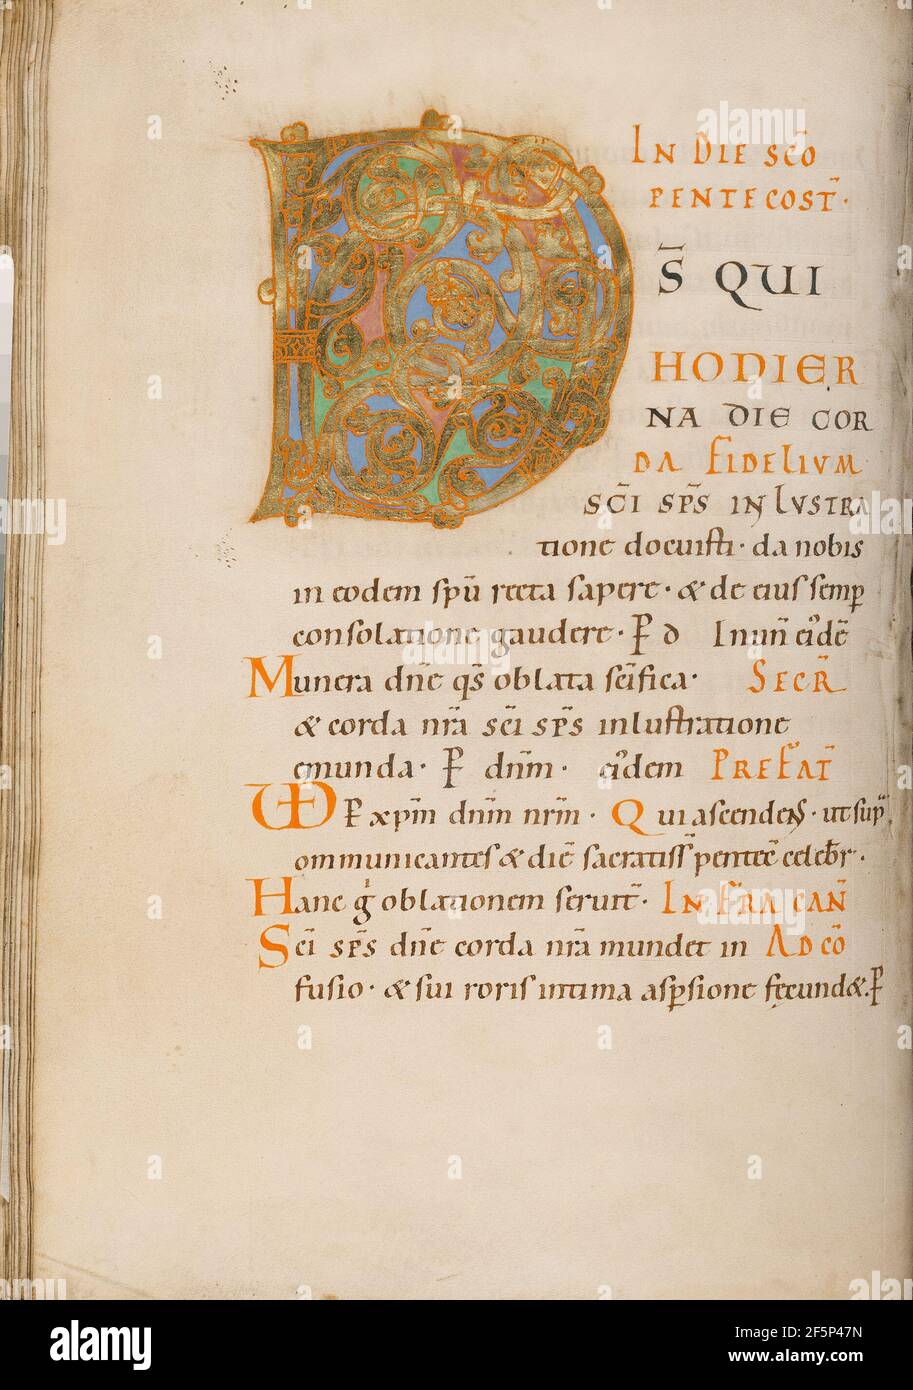 IN DIE SCŌ
PENTECOST̄·
D S̄ QUI
HODIER
NA DIE COR
DA FIDELIUM
SC̄I SP̄S INLUSTRA
tione docuisti· da nobis
in eodem spū recta sapere· & de eius semp̲
consolatione gaudere· P̲ D In un̄ eidē
Munera dn̄e qs̄ oblata sc̄ifica· SECR̄
& corda nr̄a sc̄i sp̄s inlustratione
emunda· P̲ dn̄m· eidem PREFAT̄
UD P̲ xp̄m dn̄m nr̄m· Qui ascendens· ut sup̄
ommunicantes & diē sacratiss̄ pentec̄ celebr̄·
Hanc g̊ oblationem seruit̄· INFRA CAN̄
Sc̄i sp̄s dn̄e corda nr̄a mundet in AD CŌ
fusio· & sui roris intima asp̲sione fecund&· P̲
alamy
Image ID: 2F5P47N
www.alamy.com